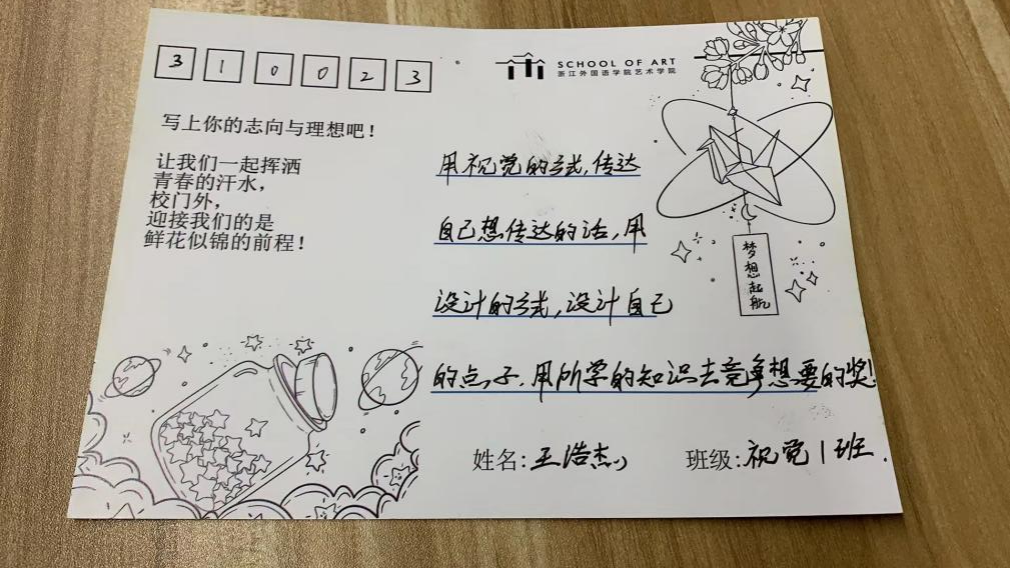 310023
SCHOOL OF ART
浙江外国语学院艺术学院
写上你的志向与理想吧!
让我们一起挥洒
青春的汗水，
校门外，
迎接我们的是
鲜花似锦的前程!
用视觉的方式,传达
自己想传达的话,用
设计的方式,设计自己
的点子,用所学的知识去竞争想要的奖!
梦想起航
姓名:王浩杰
班级:视觉1班.